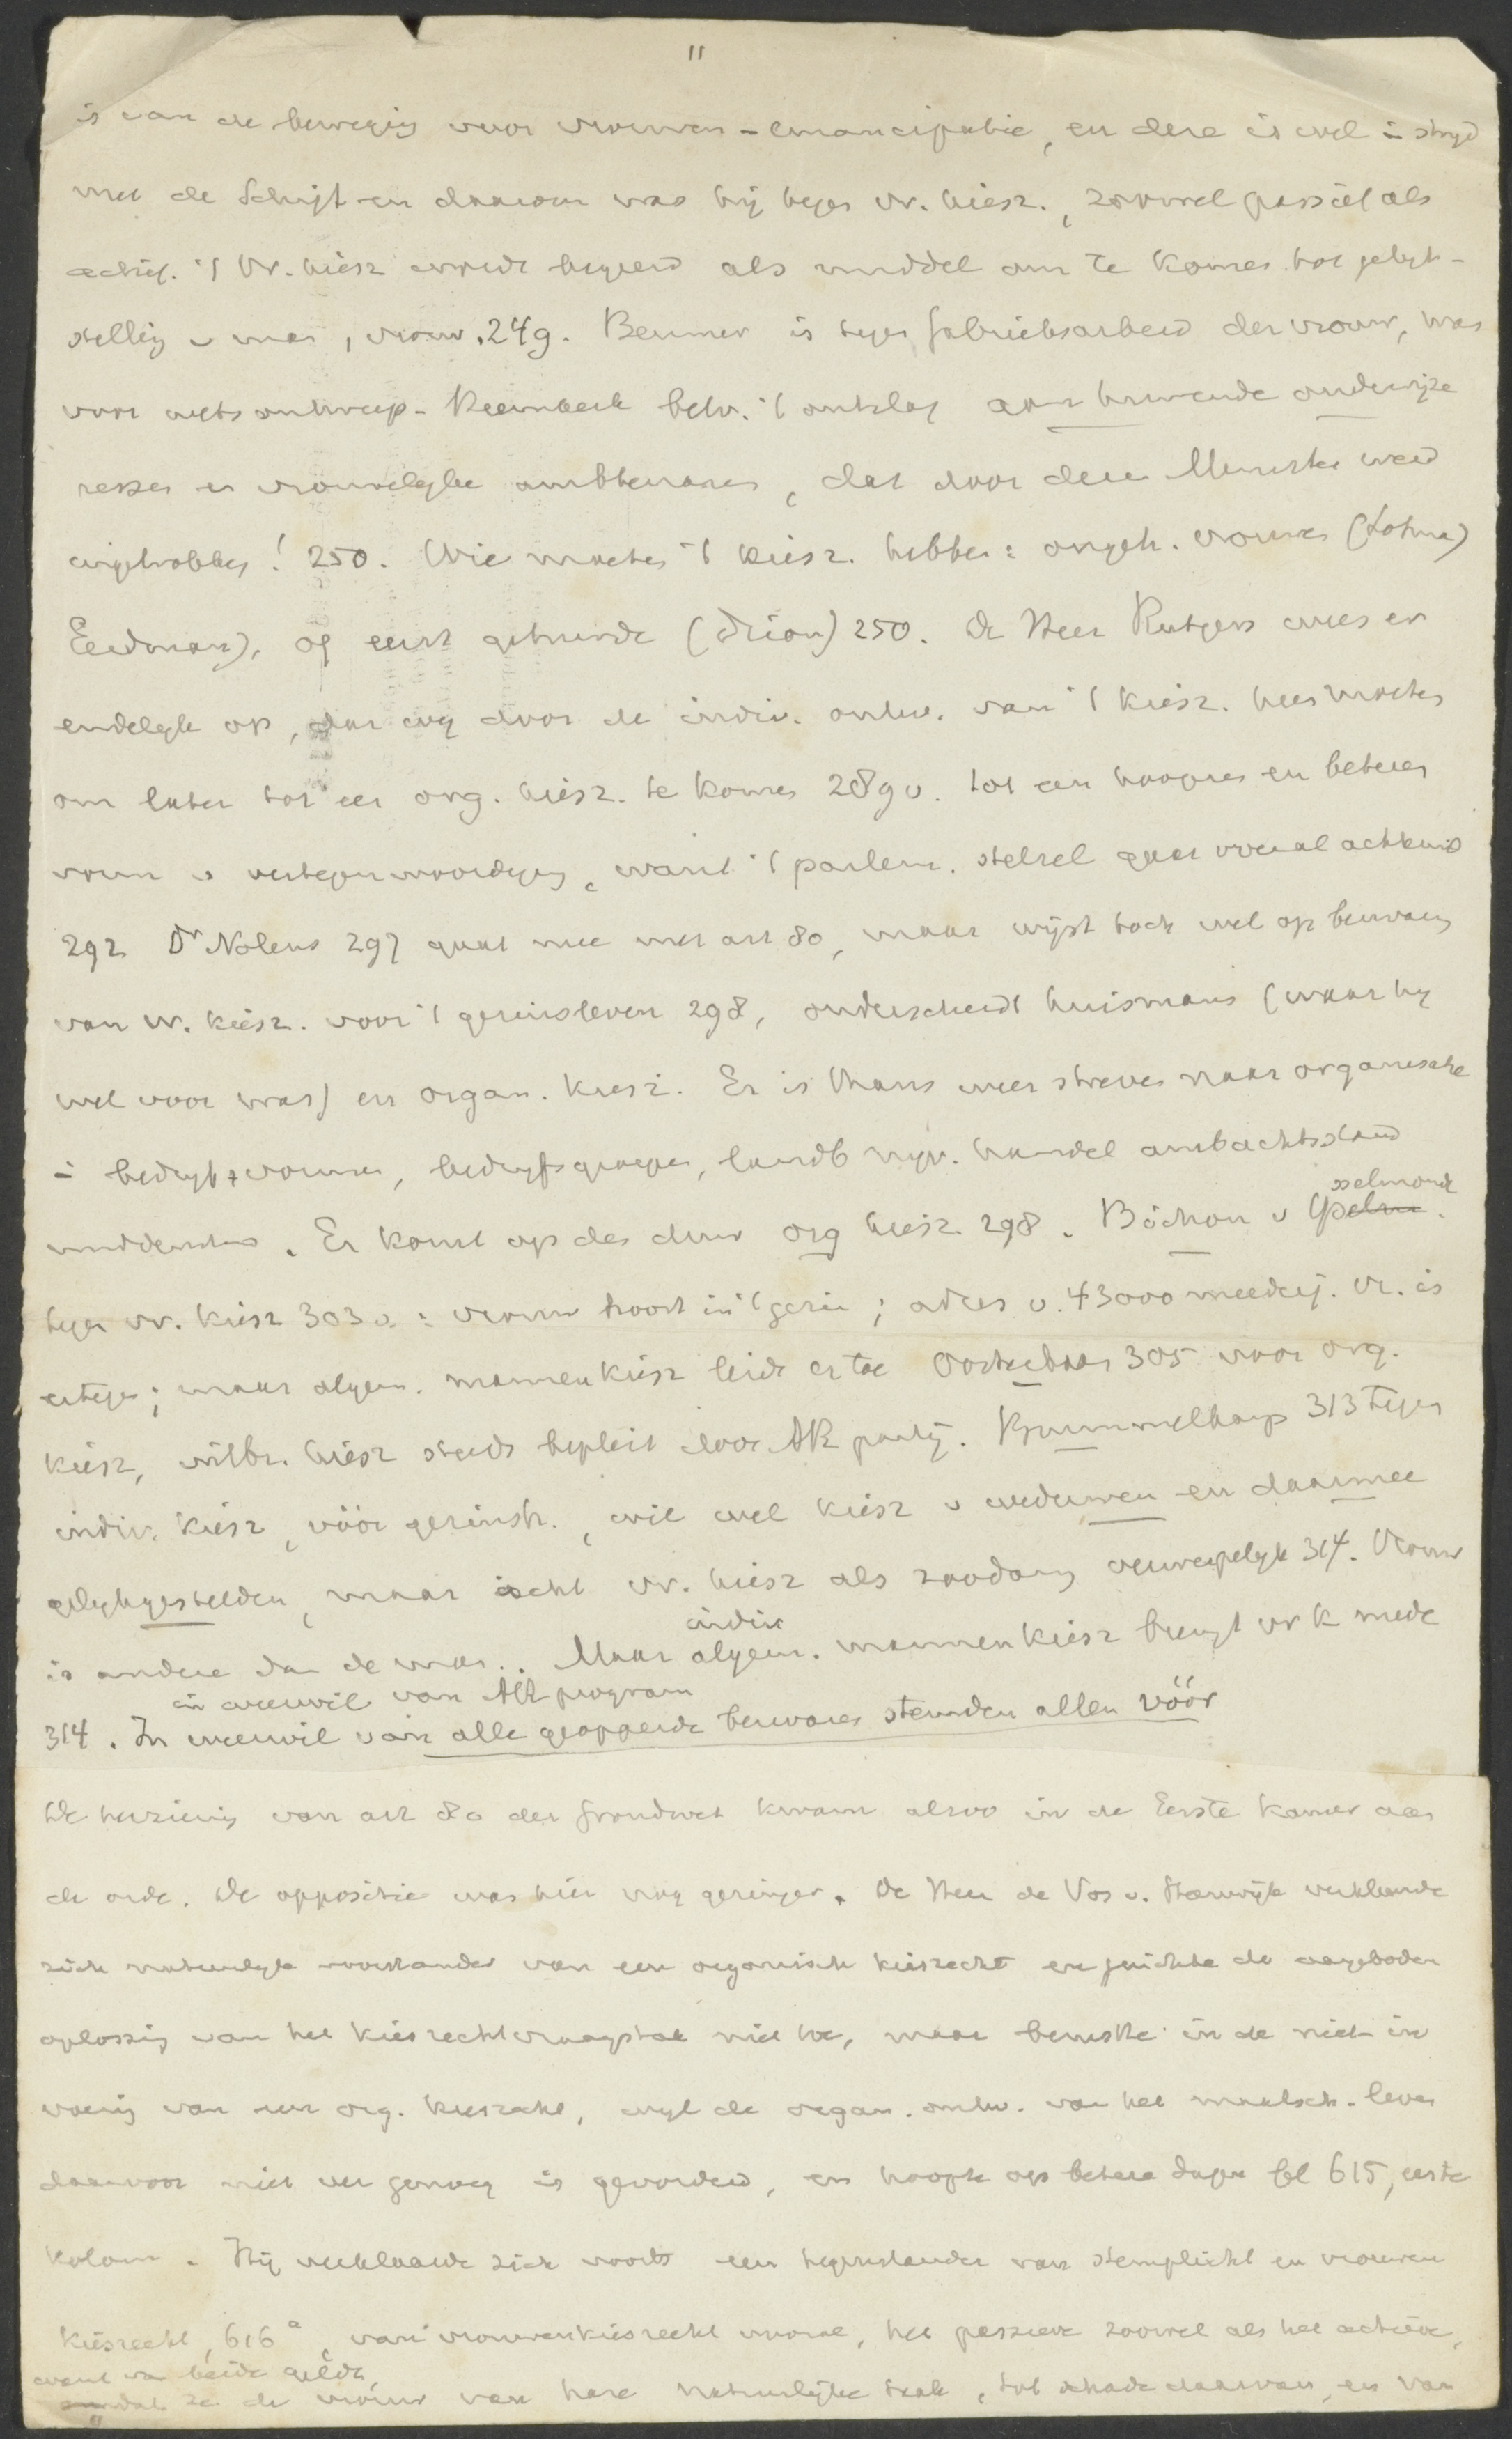 11
is van de beweging voor vrouwen-emancipatie, en deze is wel in strijd
met de Schrift en daarom was hij tegen vr. kiesr., zoowel passief als
actief. 't Vr. kiesr wordt begeerd als middel om te komen tot gelijk-
stelling v man, vrouw. 249. Beumer is tegen fabrieksarbeid der vrouw, was
voor wetsontwerp-Heemskerk betr. 't ontslag aan huwende onderwijze
ressen en vrouwelijke ambtenaren, dat door deze Minister werd
ingetrokken! 250. Wie moeten 't kiesr. hebben: ongeh. vrouwen (Lohman)
Eerdmans), of eerst gehuwde (Drion) 250. De Heer Rutgers wees er
eindelijk op, dat wij door de indiv. ontw. van 't kiesr. heen moeten
om later tot een org. kiesr. te komen 289 v. tot een hoogeren en beteren
vorm v vertegenwoordiging, want 't parlem. stelsel gaat overal achteruit
292 Dr Nolens 297 gaat mee met art 80, maar wijst toch wel op bezwaren
van vr. kiesr. voor 't gezinsleven 298, onderscheidt huismans (waar hij
wel voor was) en organ. kiesr. Er is thans weer streven naar organische
in bedrijfsvormen, bedrijfsgroepen, landb nijv. handel ambachtsstand
middenstand. Er komt op den duur org kiesr. 298. Bichon v IJsselmonde
tegen vr. kiesr 303 v. : vrouw hoort in 't gezin; adres v. 43000 meerderj. Vr. is
ertegen; maar algem. mannenkiesr leidt er toe Oosterbaan 305 voor org.
kiesr, uitbr. kiesr steeds bepleit door AR partij. Brummelkamp 313 tegen
indiv. kiesr, vóór gezinsh., wil wel kiesr v weduwen en daarmee
gelijkgestelden, maar acht vr. kiesr als zoodanig verwerpelijk 314. Vrouw
is andere dan de man.. Maar algem. indiv mannenkiesr brengt vr k mede
in weerwil van AR program
314. In weerwil van alle geopperde bezwaren stemden allen vóór
De herziening van art 80 der Grondwet kwam alzoo in de Eerste Kamer aan
de orde. De oppositie was hier nog geringer. De Heer de Vos v. Steenwijk verklaarde
zich natuurlijk voorstander van een organisch kiesrecht en juichte de aangeboden
oplossing van het kiesrechtvraagstuk niet toe, maar berustte in de niet in
voering van een org. kiesrecht, wijl de organ. ontw. van het maatsch. leven
daarvoor niet ver genoeg is gevorderd, en hoopte op betere dagen bl 615, eerste
kolom. Hij verklaarde zich voorts een tegenstander van stemplicht en vrouwen
kiesrecht, 616 a, van vrouwenkiesrecht vooral, het passieve zoowel als het actieve,
want van beide geldt,
dat ze de vrouw van hare natuurlijke taak, tot schade daarvan, en van